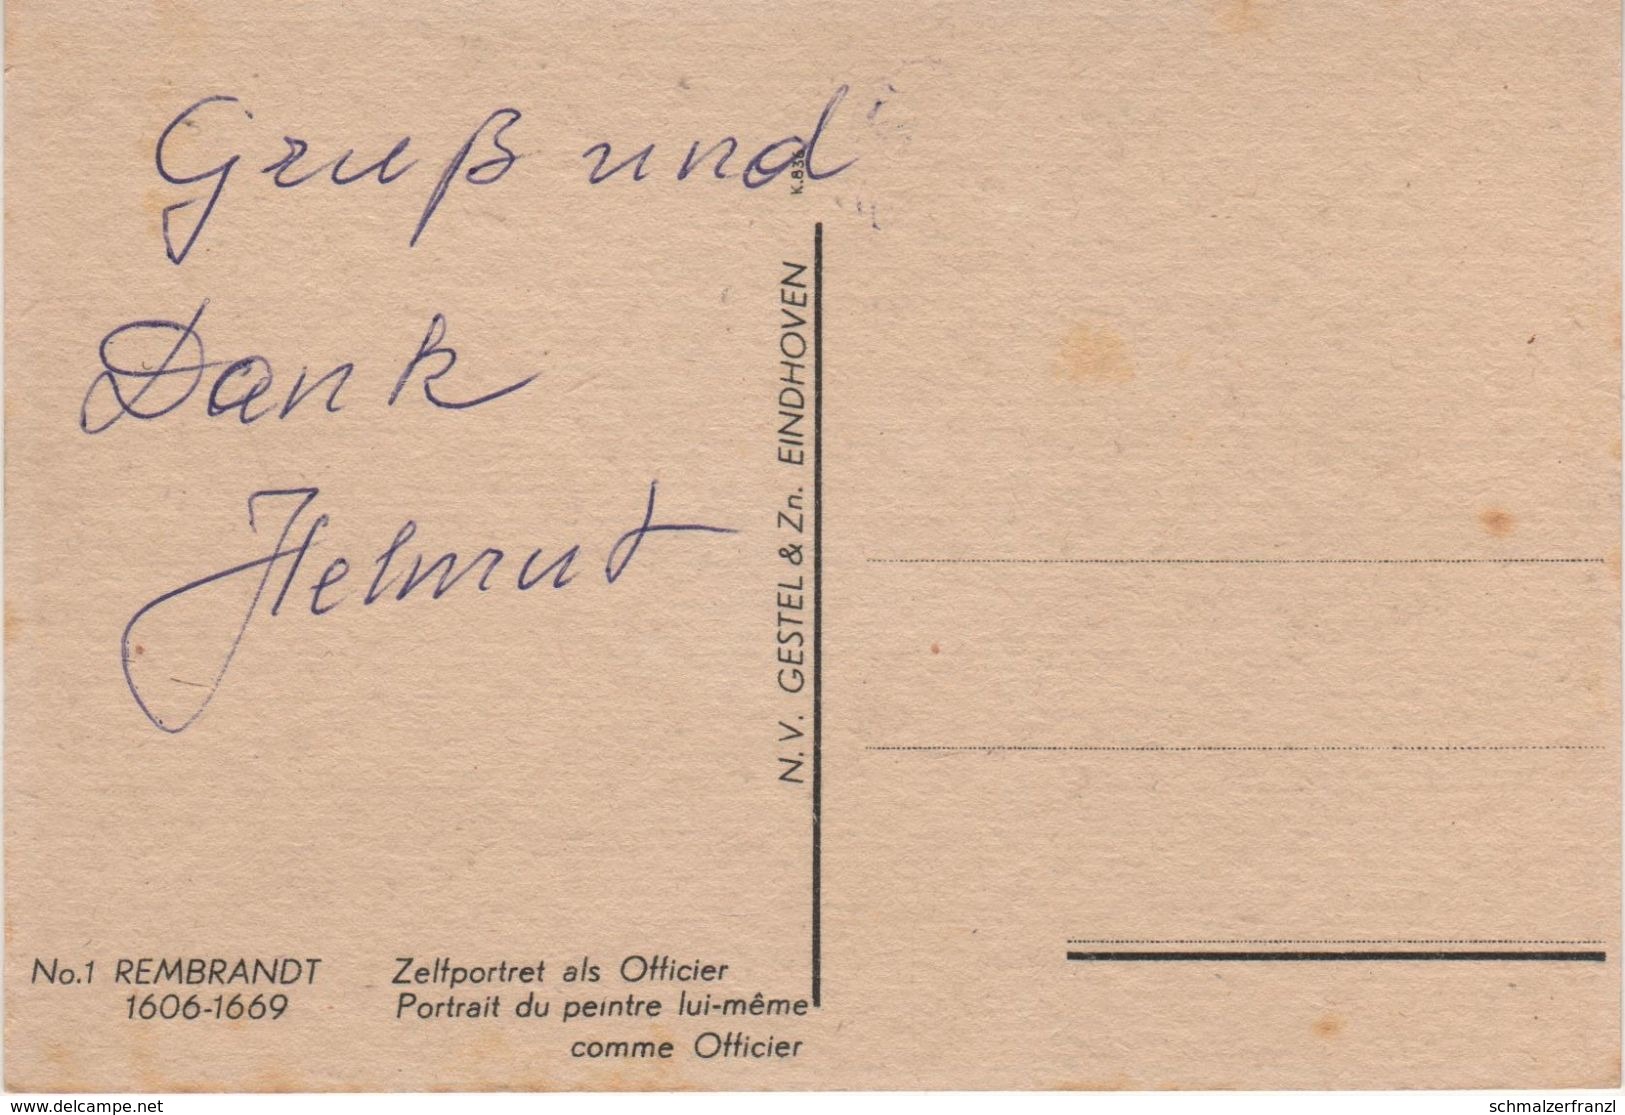 Gruß und
Dank
Helmut
K.836
N.V. GESTEL & Zn. EINDHOVEN
No.1 REMBRANDT
1606-1669
Zelfportret als Officier
Portrait du peintre lui-même
comme Officier
www.delcampe.net
schmalzerfranzl